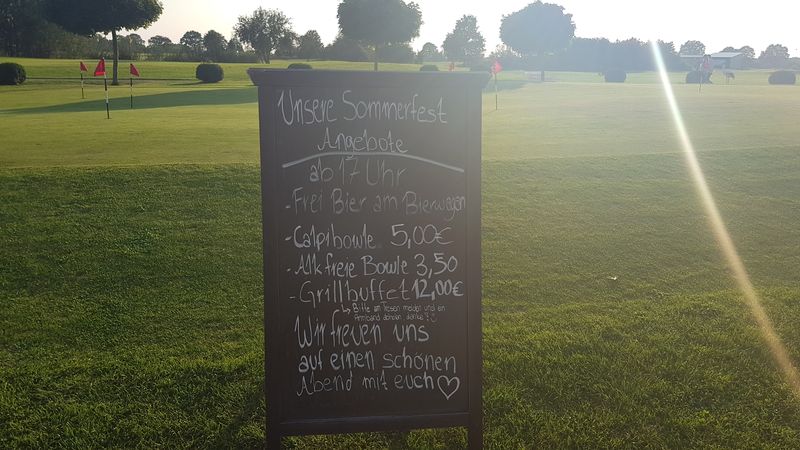 Unsere Sommerfest
Angebote
ab 17 Uhr
- Frei Bier am Bierwagen
- Calpibowle 5,00€
- Alkfreie Bowle 3,50
- Grillbuffet 12,00€
↳ Bitte am Tresen melden und ein
Armband abholen, danke! ☺
Wir freuen uns
auf einen schönen
Abend mit euch ♡